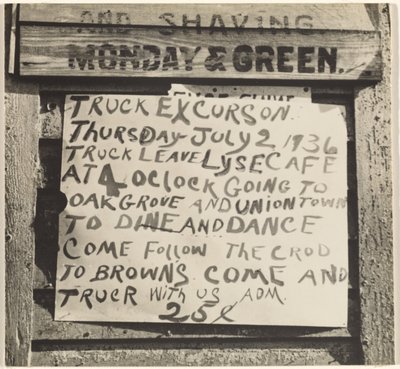 AND SHAVING
MONDAY & GREEN.
TRUCK EXCURSON
THURSDAY JULY 2 1936
TRUCK LEAVE LYSE CAFE
AT 4 OCLOCK GOING TO
OAK GROVE AND UNIONTOWN
TO DINE AND DANCE
COME FOLLOW THE CROD
TO BROWNS. COME AND
TRUCR WITH US ADM.
25¢